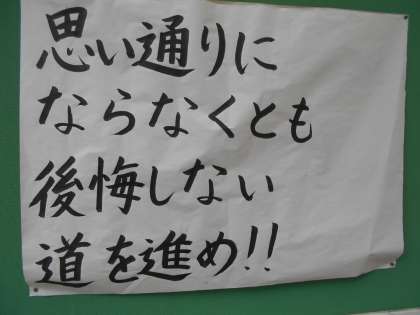 思い通りに
ならなくとも
後悔しない
道を進め!!